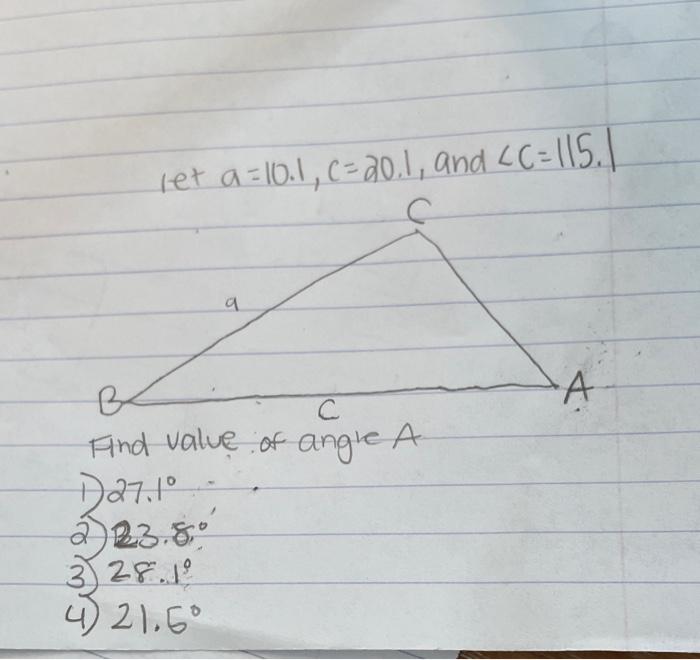 let a=10.1, C=20.1, and <C=115.1
C
a
B
A
C
Find value of angle A
1) 27.1°
2) 23.8°
3) 28.1°
4) 21.6°